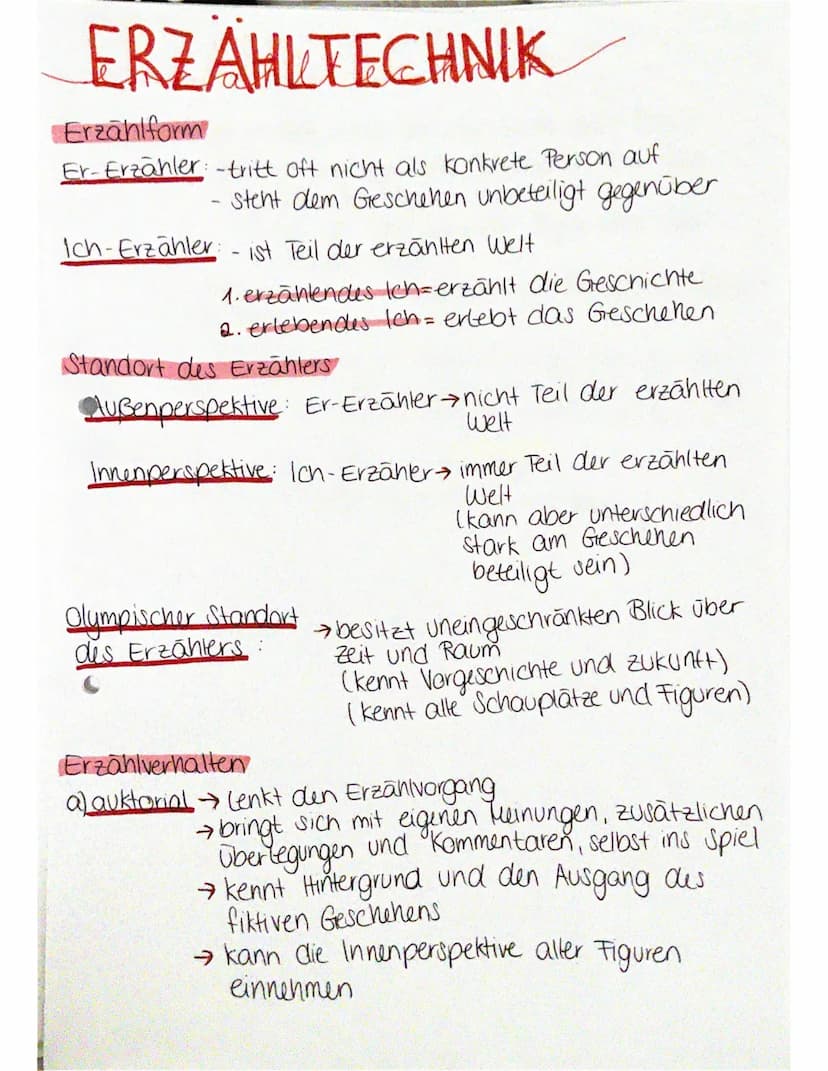 ERZÄHLTECHNIK
Erzählform
Er-Erzähler: - tritt oft nicht als konkrete Person auf
- steht dem Geschehen unbeteiligt gegenüber
Ich-Erzähler: - ist Teil der erzählten Welt
1. erzählendes Ich = erzählt die Geschichte
2. erlebendes Ich = erlebt das Geschehen
Standort des Erzählers
Außenperspektive: Er-Erzähler → nicht Teil der erzählten
Welt
Innenperspektive: Ich-Erzäher → immer Teil der erzählten
Welt
(kann aber unterschiedlich
stark am Geschehen
beteiligt sein)
Olympischer Standort → besitzt uneingeschränkten Blick über
des Erzählers: Zeit und Raum
(kennt Vorgeschichte und Zukunft)
(kennt alle Schauplätze und Figuren)
Erzählverhalten
a) auktorial → lenkt den Erzählvorgang
→ bringt sich mit eigenen Meinungen, zusätzlichen
Überlegungen und Kommentaren, selbst ins Spiel
→ kennt Hintergrund und den Ausgang des
fiktiven Geschehens
→ kann die Innenperspektive aller Figuren
einnehmen